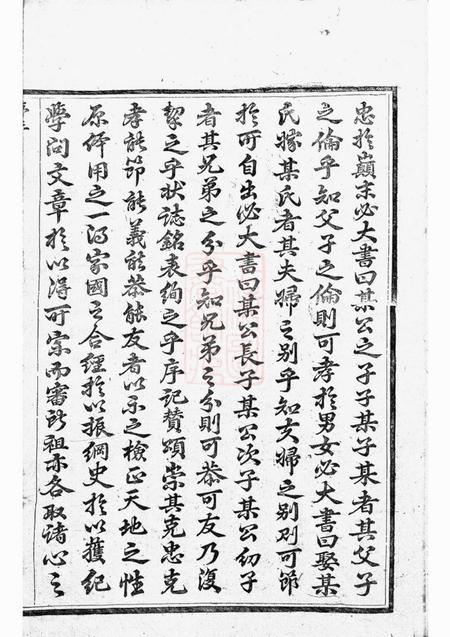 忠於巔末必大書曰某公之子子某子某者其父子
之倫乎知父子之倫則可孝於男女必大書曰娶某
氏嫁某氏者其夫婦之别乎知夫婦之别則可節
於所自出必大書曰某公長子某公次子某公幼子
者其兄弟之分乎知兄弟之分則可恭可友乃復
挈之乎狀誌銘表絢之乎序記贊頌崇其克忠克
孝能節能義能恭能友者以示之檢正天地之性
原繹用之一鄉家國之合經於以振綱史於以護紀
學问文章於以得可宗而審所祖亦各取诸心之